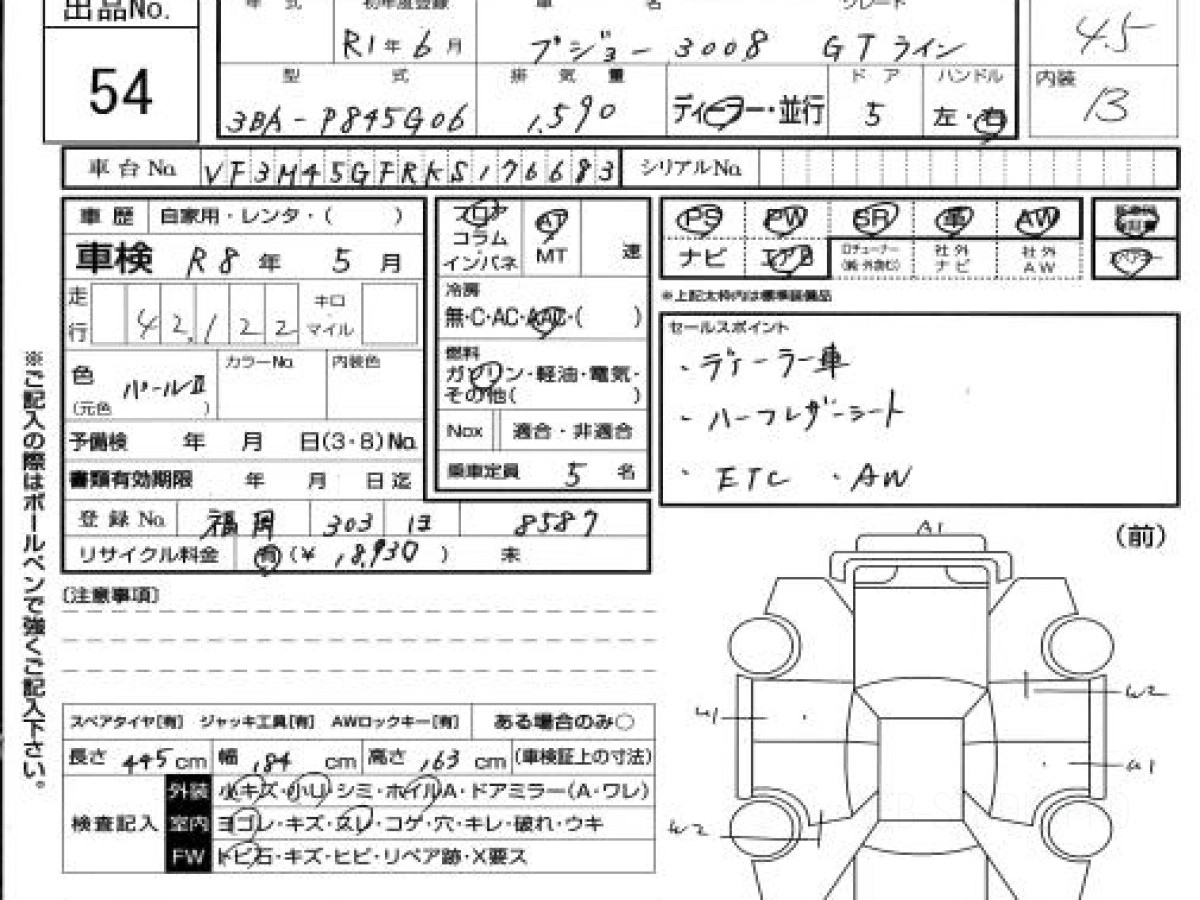 出品No.
54
年 式 初年度登録 車 名 グレード
R1年6月 プジョー 3008 GTライン
4.5
型 式 排 気 量 ド ア ハンドル
3BA-P845G06 1,590 ディーラー・並行 5 左・右
内装 B
車台No. VF3M45GFRKS176683 シリアルNo.
車歴 自家用・レンタ・( )
車検 R8年 5月
走行 42,122 キロ マイル
色 パールII カラーNo. 内装色
(元色 )
予備検 年 月 日(3・8)No.
書類有効期限 年 月 日迄
登録No. 福岡 303 8587
リサイクル料金 有(¥ 18,930 ) 未
フロア コラム・インパネ AT MT 速
冷房
無・C・AC・AAC・( )
燃料
ガソリン・軽油・電気・
その他( )
Nox 適合・非適合
乗車定員 5 名
PS PW SR 革 AW
ナビ エアB ロチューナー 社外ナビ 社外AW
※上記太枠内は標準装備品
セールスポイント
・ディーラー車
・ハーフレザーシート
・ETC ・AW
〔注意事項〕
スペアタイヤ[有] ジャッキ工具[有] AWロックキー[有] ある場合のみ○
長さ 445cm 幅 184 cm 高さ 163 cm (車検証上の寸法)
検査記入
外装 小キズ・小凹・シミ・ホイルA・ドアミラー(A・ワレ)
室内 ヨゴレ・キズ・スレ・コゲ・穴・キレ・破れ・ウキ
FW トビ石・キズ・ヒビ・リペア跡・X要ス
(前)
A1
W2
U1
U1
W2
※ご記入の際はボールペンで強くご記入下さい。